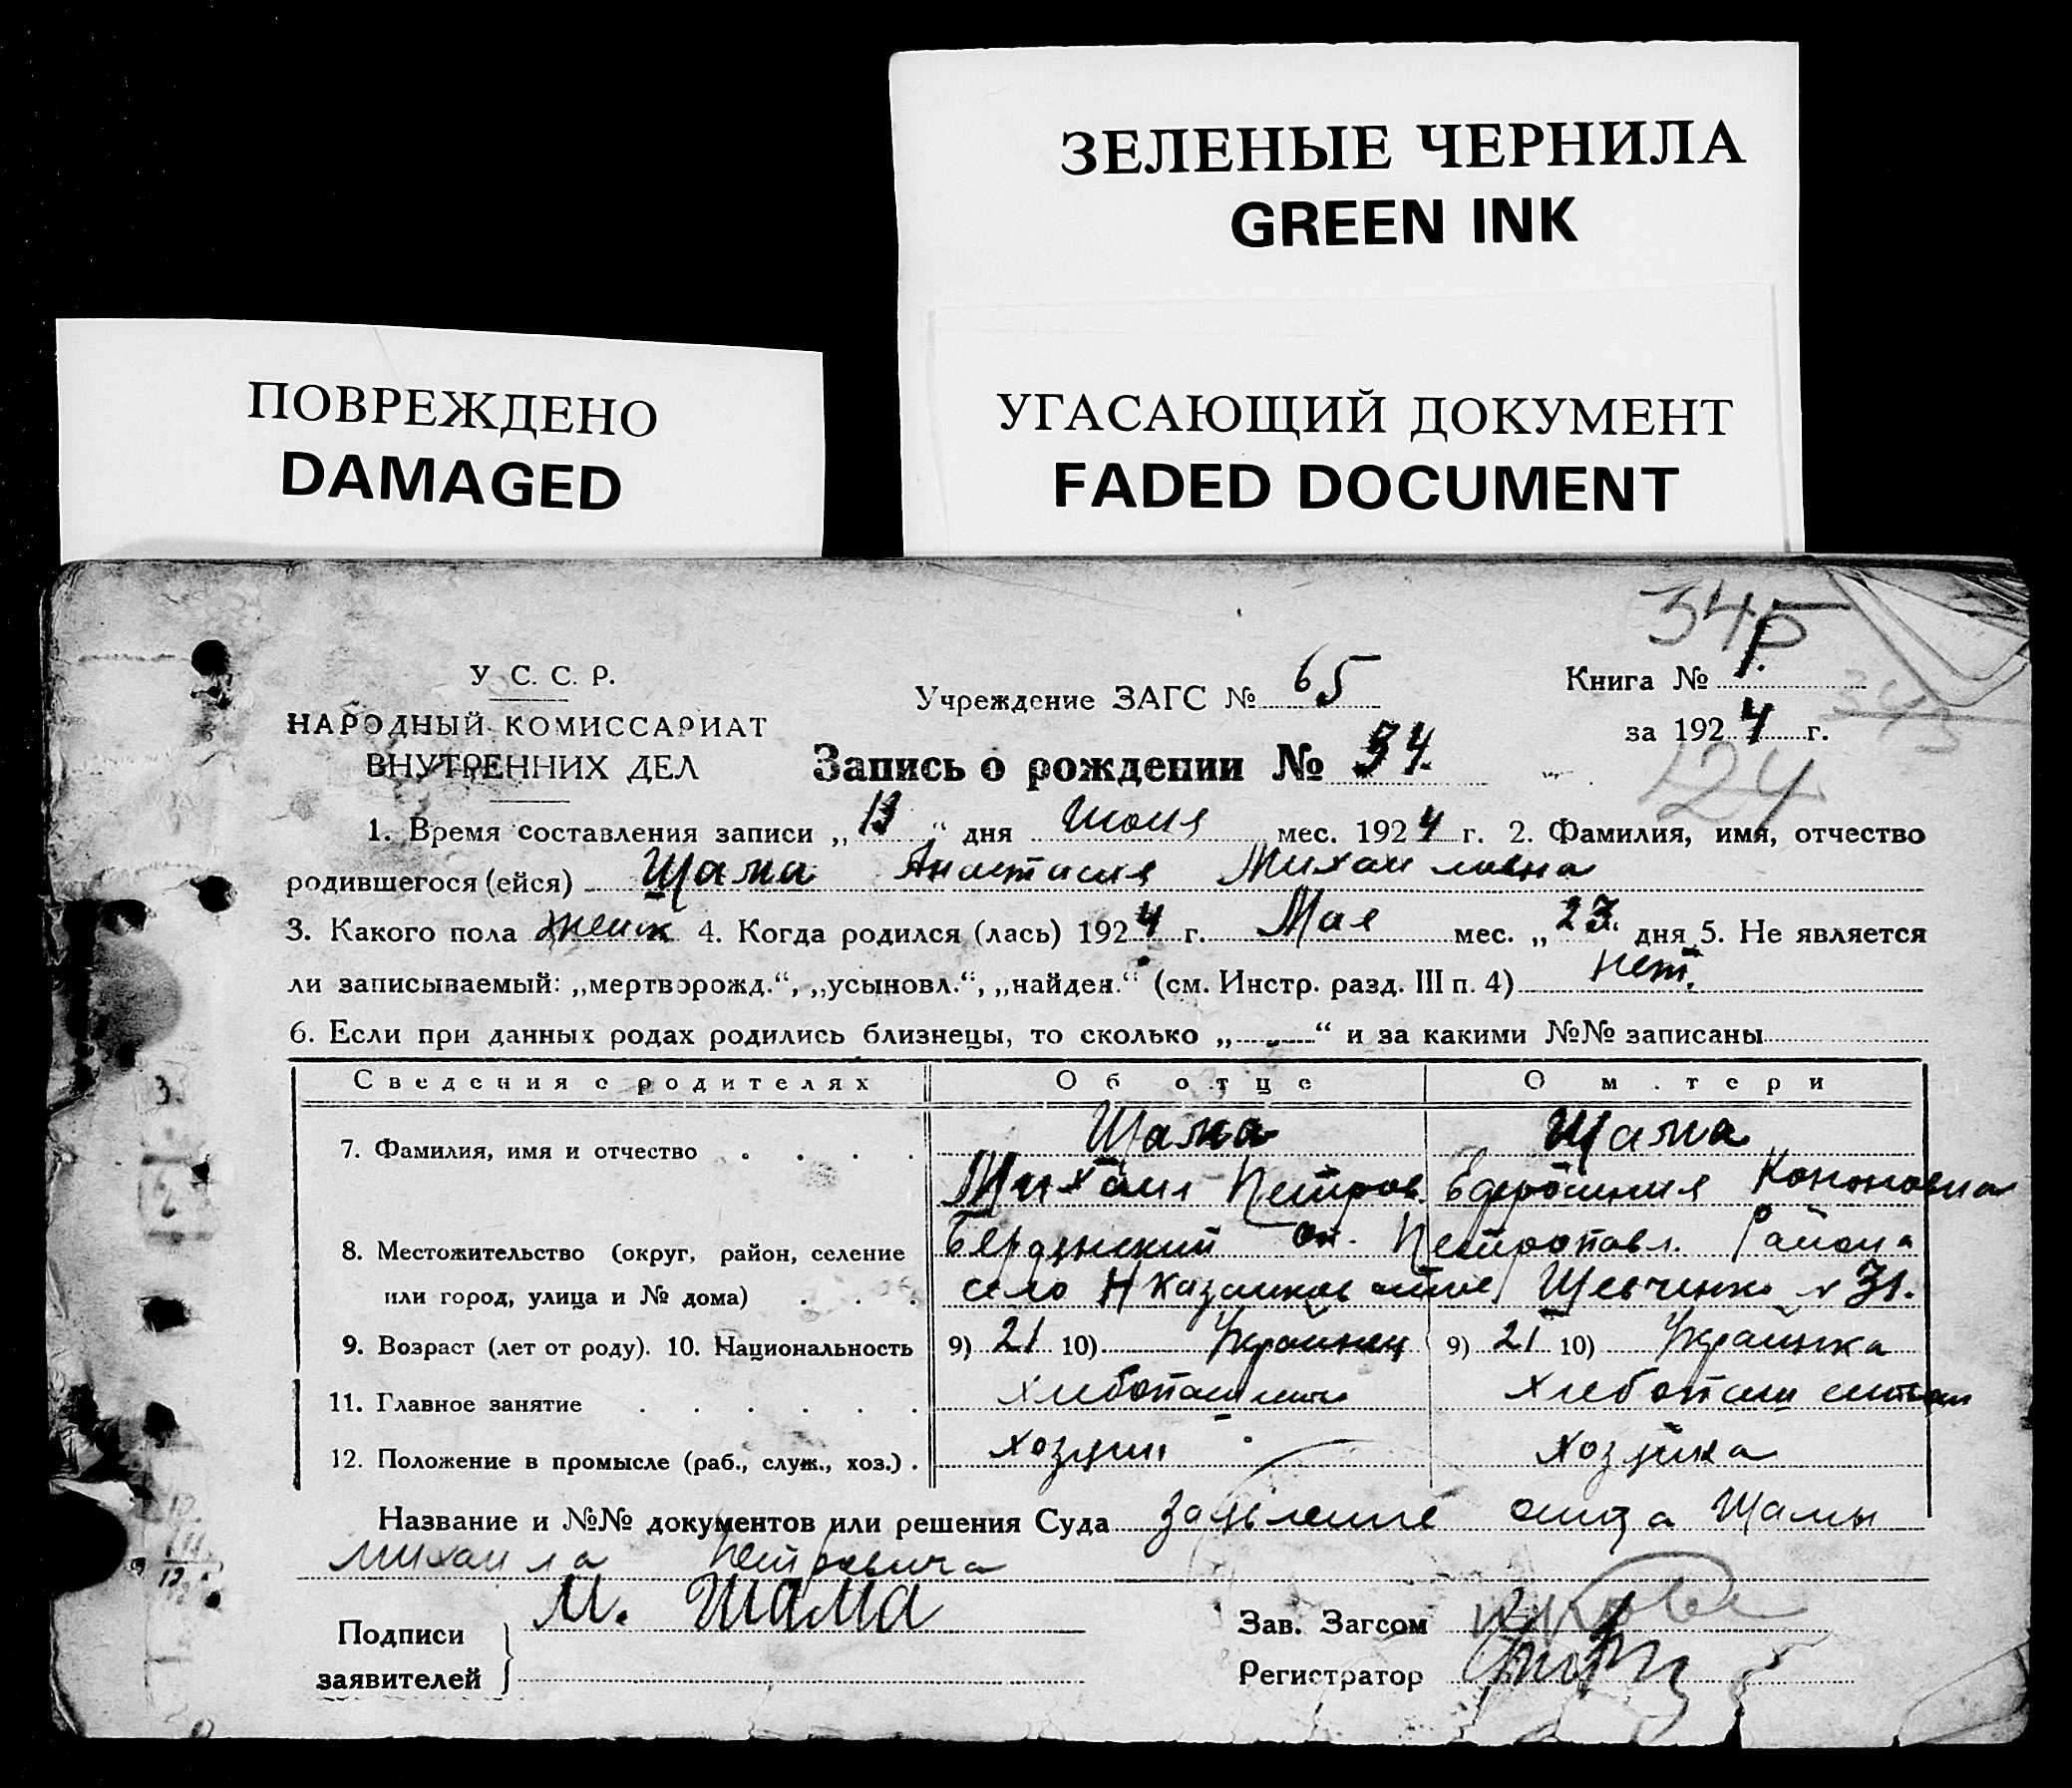 ЗЕЛЕНЫЕ ЧЕРНИЛА
GREEN INK
ПОВРЕЖДЕНО
DAMAGED
УГАСАЮЩИЙ ДОКУМЕНТ
FADED DOCUMENT
345
У С. С. Р.
НАРОДНЫЙ КОМИССАРИАТ
ВНУТРЕННИХ ДЕЛ
Учреждение ЗАГС № 65
Книга № 1.
343
за 1924 г.
124
Запись о рождении № 54.
1. Время составления записи „13“ дня Июня мес. 1924 г. 2. Фамилия, имя, отчество
родившегося (ейся) Щама Анастасия Михаиловна
3. Какого пола женск 4. Когда родился (лась) 1924 г. Мая мес. „23. дня 5. Не является
ли записываемый: „мертворожд.“, „усыновл.“, „найден.“ (см. Инстр. разд. III п. 4) нет.
6. Если при данных родах родились близнецы, то сколько „-“ и за какими №№ записаны
Сведения о родителях Об отце О м.тери
7. Фамилия, имя и отчество Щама Щама
Михаил Петров. Ефросиния Кононовна
8. Местожительство (округ, район, селение Бердянский ок. Петропавл. Района
или город, улица и № дома) село Н Казанковатое Шевченко № 31.
9. Возраст (лет от роду). 10. Национальность 9) 21 10) Украинец 9) 21 10) Украинка
11. Главное занятие хлебопашество хлебопашеством
12. Положение в промысле (раб., служ., хоз.) хозяин хозяйка
Название и №№ документов или решения Суда Заявление отца Щамы
Михаила Петровича
Подписи М. Шама
заявителей
Зав. Загсом
Регистратор